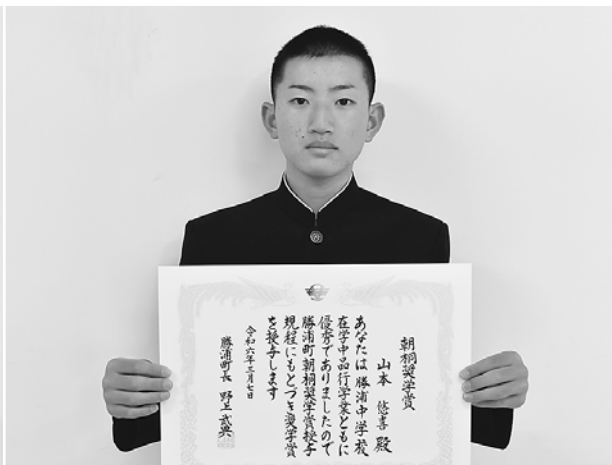 朝桐奨学賞
山本 悠喜 殿
あなたは勝浦中学校
在学中品行学業ともに
優秀でありましたので
勝浦町朝桐奨学賞授与
規程にもとづき奨学賞
を授与します
令和六年三月七日
勝浦町長 野上武典